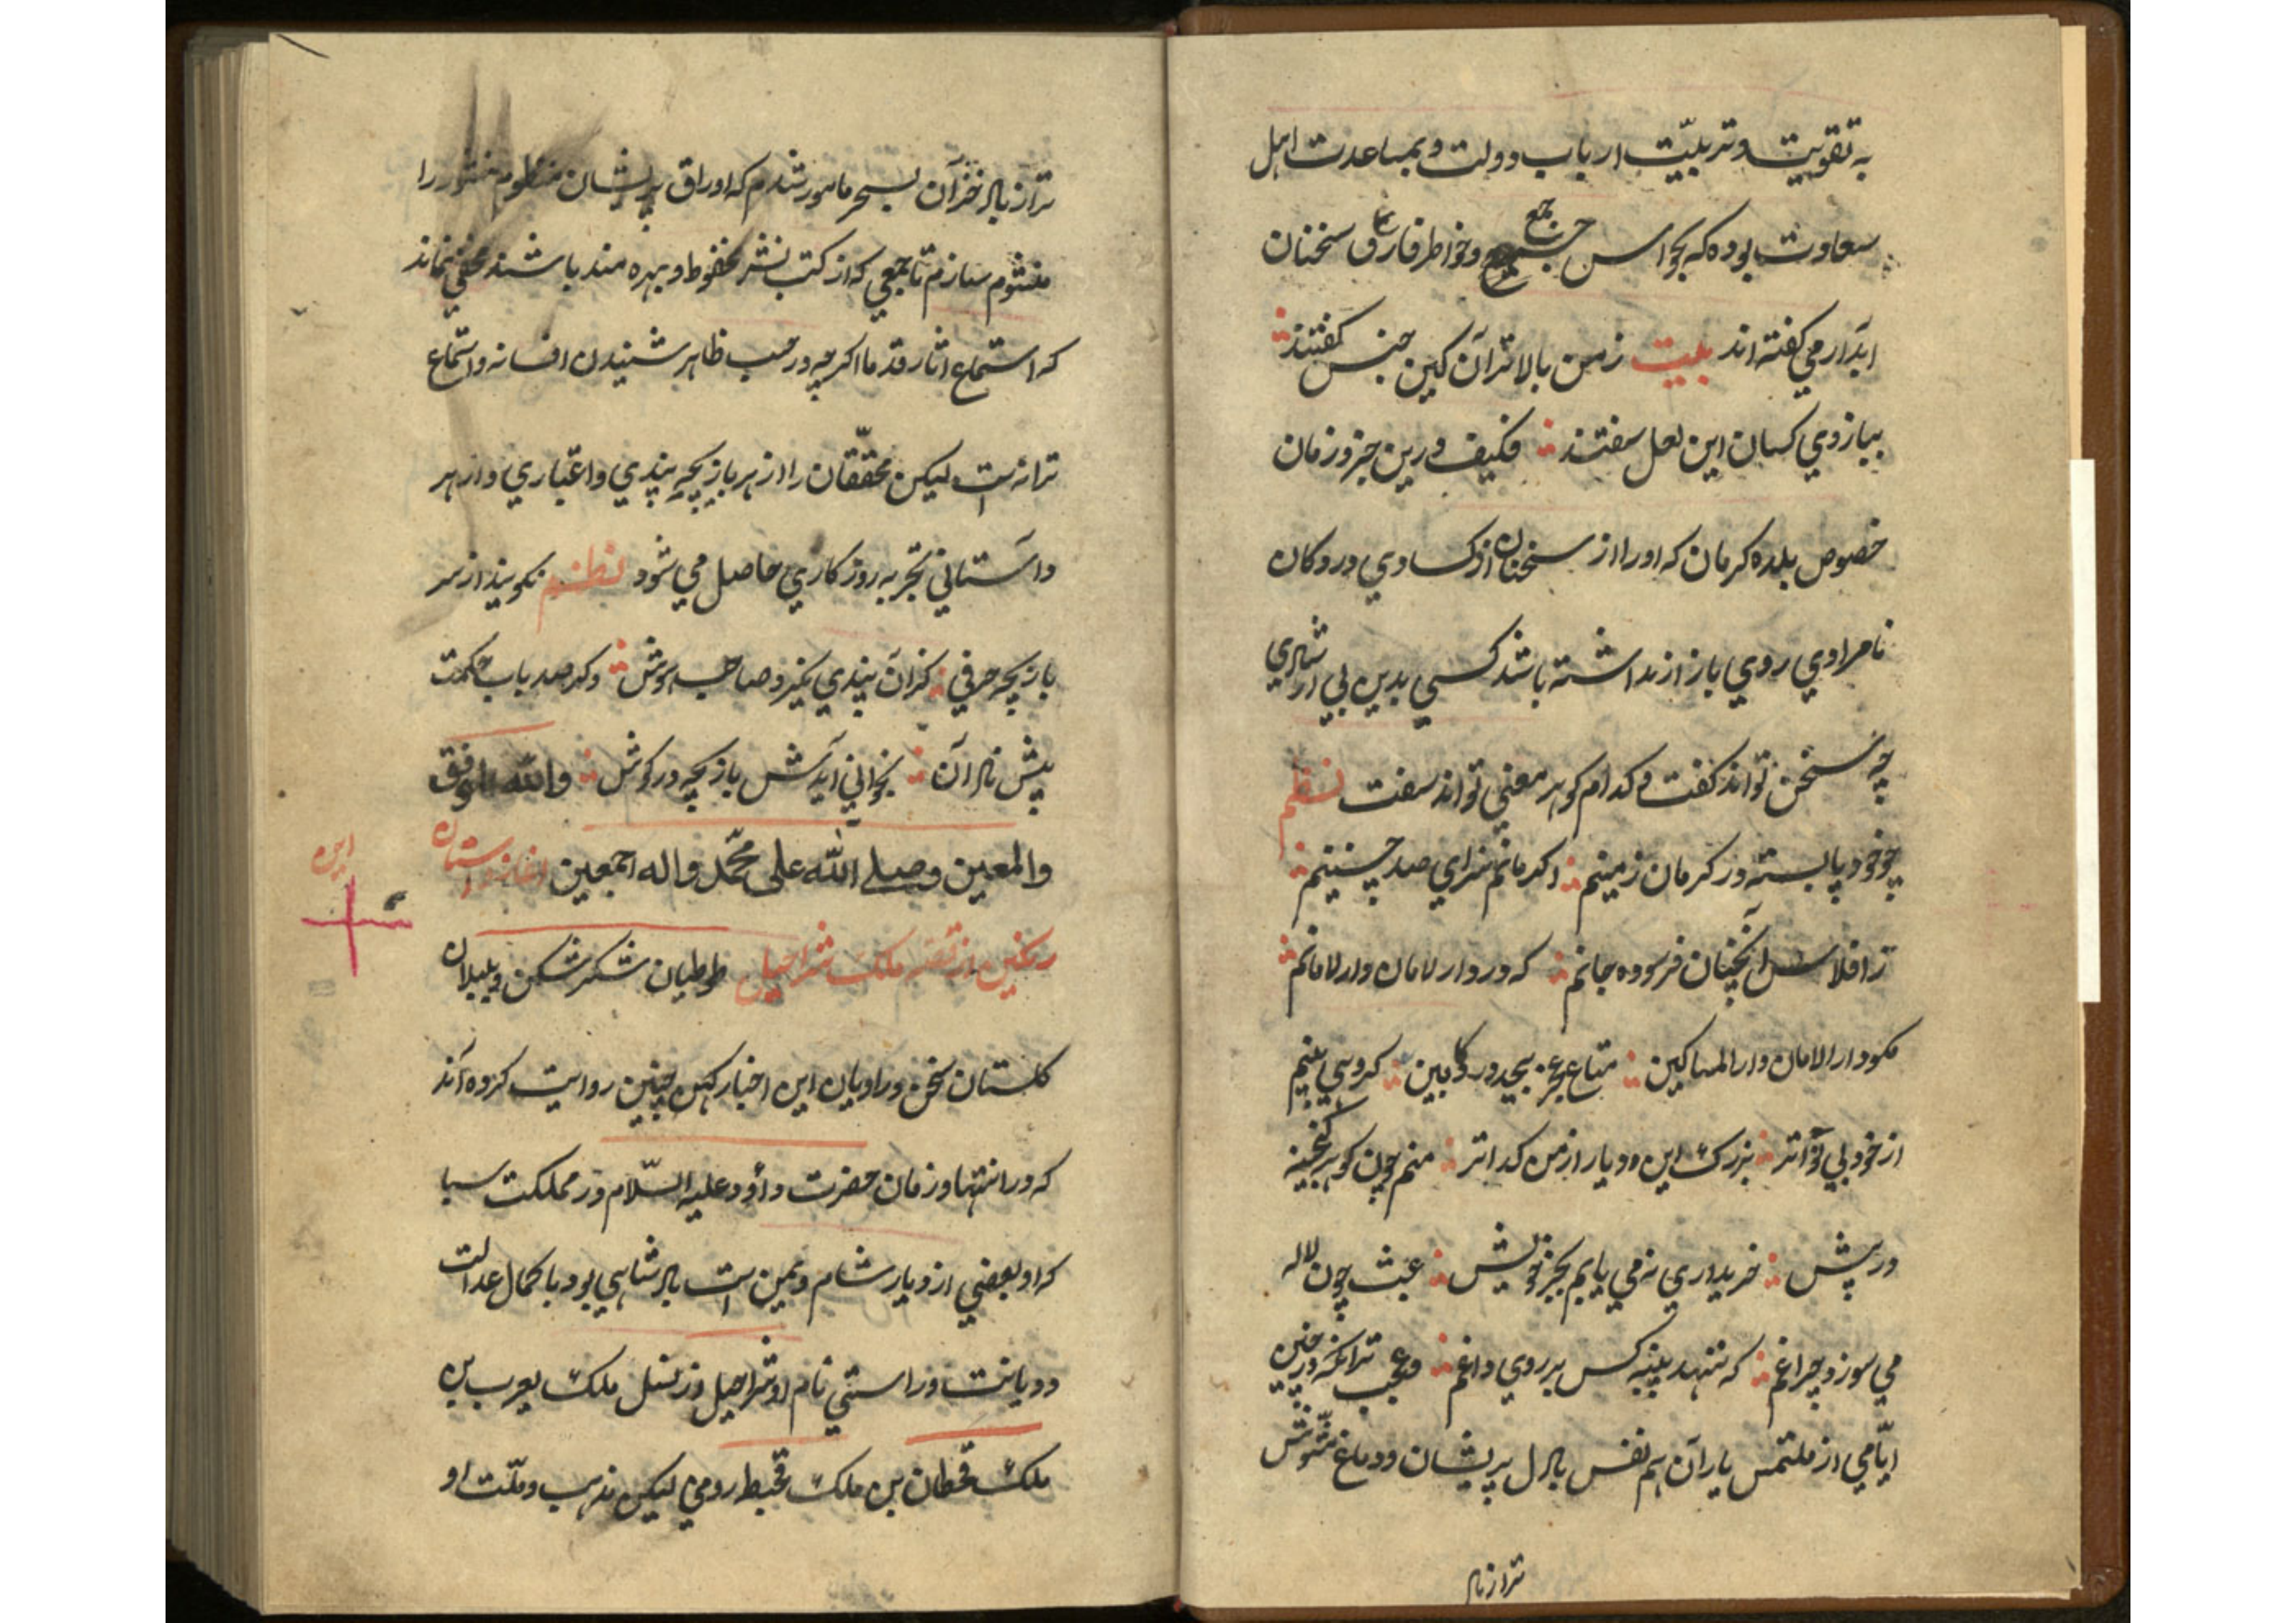 به تقویت و تربیّت ارباب دولت و بمساعدت اهل
سعادت بوده که بحواس جمع و خواطر فارق سخنان
ابدار می کفته اند بیت زمن بالاتران کین جنس کفتند
ببازوی کسان این لعل سفتند فکیف درین جزو زمان
خصوص بلده کرمان که اورا از سخنان از کسادی در دکان
نامرادی روی باز از نداشته باشد کسی بدین بی
چه سخن تواند کفت و کدام کوهر معنی تواند سفت نظم
چو خود پابسته در کرمان زمینم اکر مانم سزای صد چنینم
ز افلاس انچنان فرسوده جانم که در دار لامان دار لامانم
مکو دار الامان دار المساکین متاع عجز بیحد در کابین کروهی بینم
از خود بی نواتر بزرک این دیار از من کداتر منم چون کوهر کنجینه
در پیش خریداری نه می یابم بجز خویش عبث چون لاله
می سوزد چراغم که ننهد پنبه کس بر روی داغم و عجب ترانکه در چنین
ایّامی از ملتمس یاران هم نفس بادل پریشان و دماغ مشوّش
ترازنا
تراز بالا خزان بسحر مامور شدم که اوراق پریشان منظوم منثور را
منثوم سازم تا جمعی که از کتب نشر محفوظ و بهره مند باشند مخفی نماند
که استماع اثار قدما اکرچه در حسب ظاهر شنیدن افسانه و استماع
ترانه است لیکن محقّقان را از هر بازیچه پندی و اعتباری و از هر
داستانی تجربه روزکاری حاصل می شود نظم نکویند از سر
بازیچه حرفی کزان پندی نکیرد صاحب هوش وکر صد باب حکمت
پیش نادان بخوانی آیدش بازیچه در کوش والله الموفق
والمعین وصلی الله علی محمّد واله اجمعین اغاز داستان
این
رنکین از قصه ملک شراحیل طوطیان شکر شکن و بلبلان
کلستان سخن و راویان این اخبار کهن چنین روایت کرده اند
که در انتها و زمان حضرت داؤد علیه السّلام در مملکت سبا
که او بعضی از دیار شام و یمین است بادشاهی بود با کمال عدالت
و دیانت و راستی نام او شراحیل و از نسل ملک یعرب بن
ملک قحطان بن ملک قحبط رومی لیکن مذهب و ملّت او